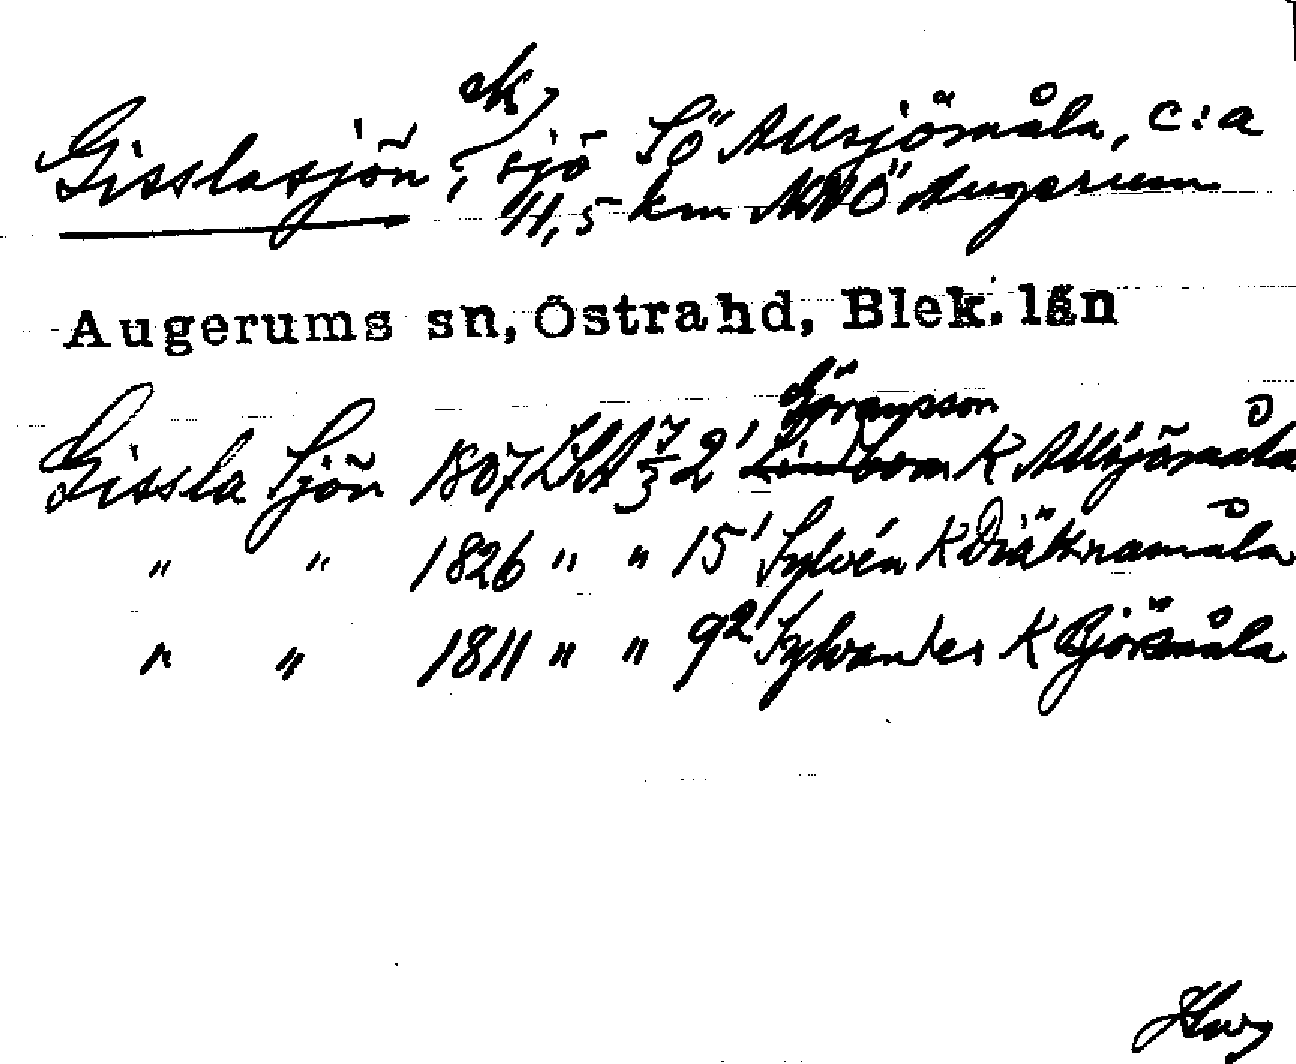 ek
Gisslasjön, sjö SÖ Allsjömåla, c:a
4,5 km NNÖ Augerum
Augerums sn, Östra hd, Blek. län
Göransson
Gissla Sjön 1807 LSA 7/3 2' Lindbom K Allsjömåla
" " 1826 " " 15' Sylvén K Diäknamåla
" " 1811 " " 9²' Sylvander K Björsmåla